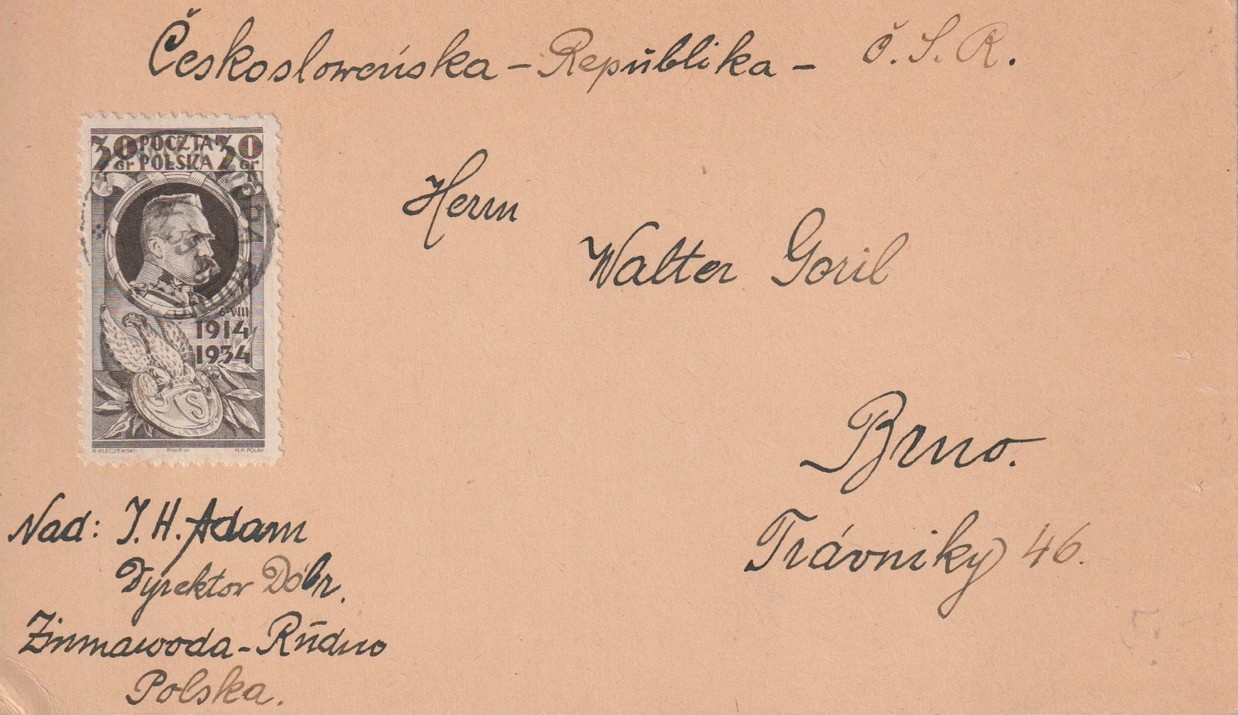 Českosloweńska - Republika - Č. S. R.
30 POCZTA 30
GR POLSKA GR
6·VIII
1914
1934
Herrn
Walter Goril
Brno.
Trávniky 46.
Nad: J. H. Adam
Dyrektor Dóbr.
Zimnawoda - Rudno
Polska.
5.-